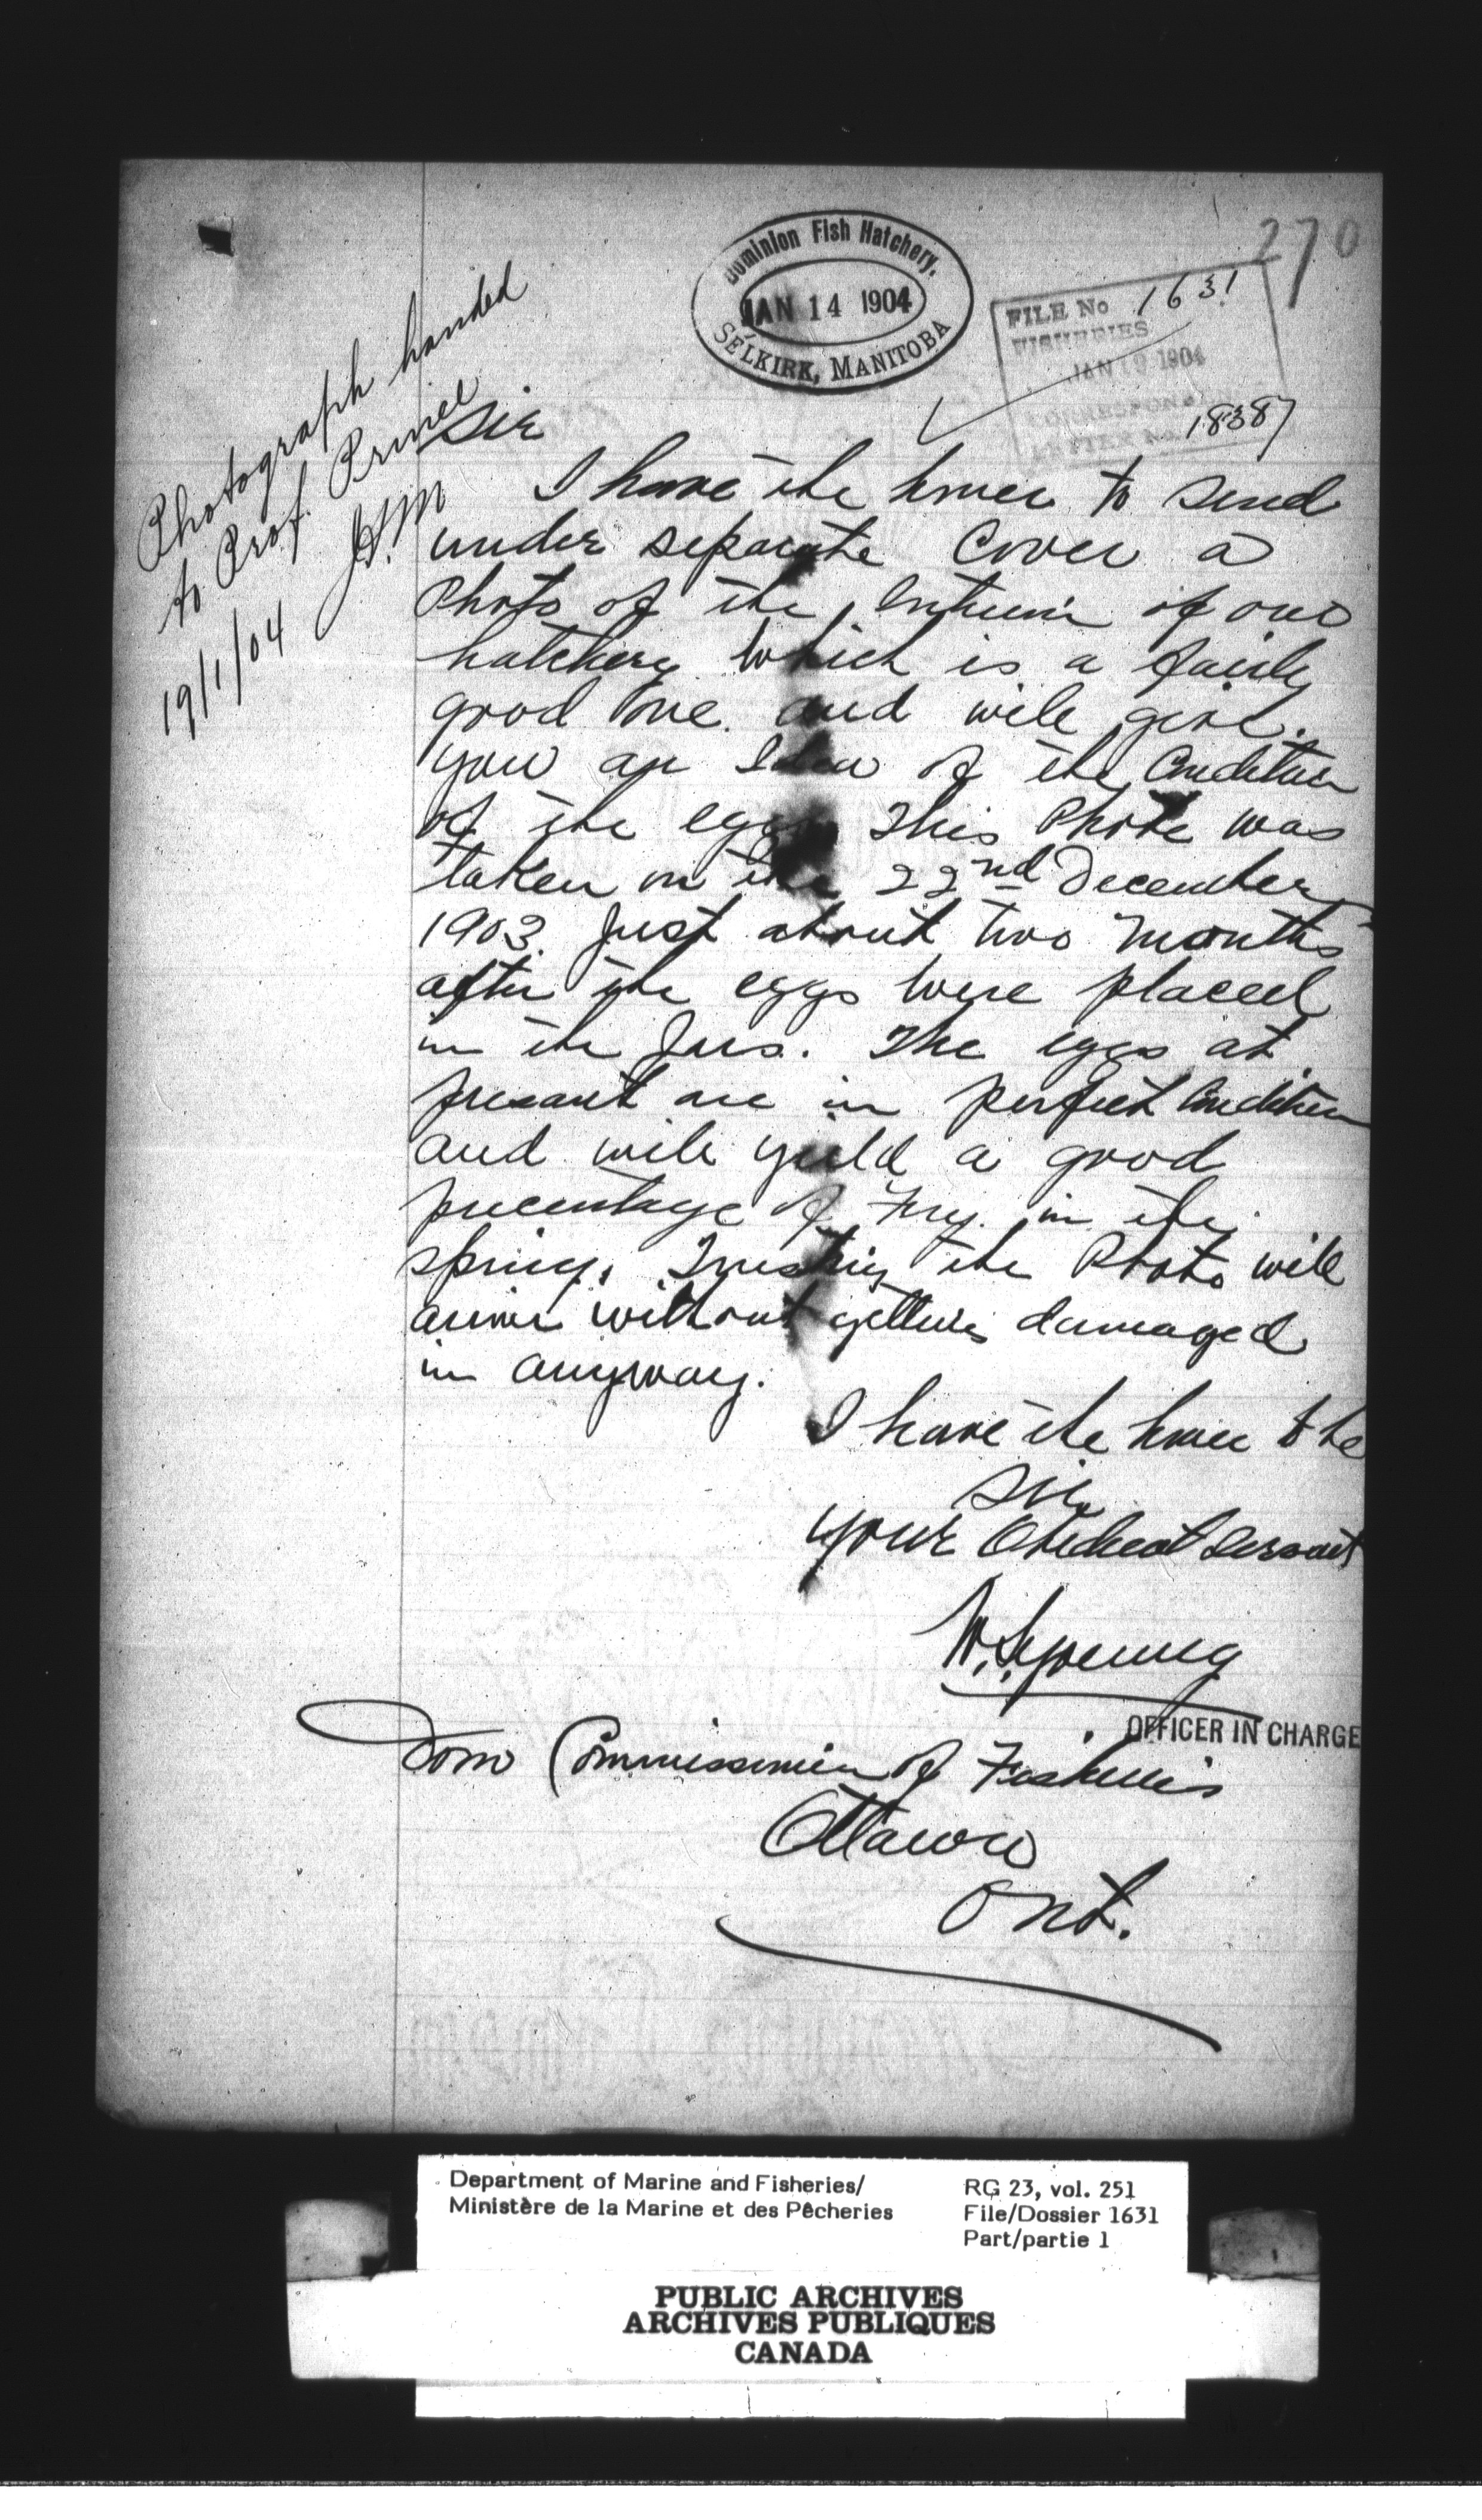 270
Dominion Fish Hatchery,
JAN 14 1904
SELKIRK, MANITOBA
FILE No 1631
FISHERIES
JAN 19 1904
CORRESPONDENCE
LETTER No. 18387
Photograph handed
to Prof. Prince
19/1/04
Sir
I have the honor to send
under separate Cover a
Photo of the Interior of our
hatchery which is a fairly
good one. and will give
you an Idea of the Condition
of the eggs This Photo was
taken on the 22nd December
1903. Just about two months
after the eggs were placed
in the Jars. The eggs at
present are in perfect Condition
and will yield a good
precentage of Fry. in the
spring. Trusting the Photo will
arrive without getting damaged
in anyway.
I have the honor to be
Sir
your Obedient Servant
W.S. Young
OFFICER IN CHARGE
Dom Commissioner of Fisheries
Ottawa
Ont.
Department of Marine and Fisheries/
Ministère de la Marine et des Pêcheries
RG 23, vol. 251
File/Dossier 1631
Part/partie 1
PUBLIC ARCHIVES
ARCHIVES PUBLIQUES
CANADA